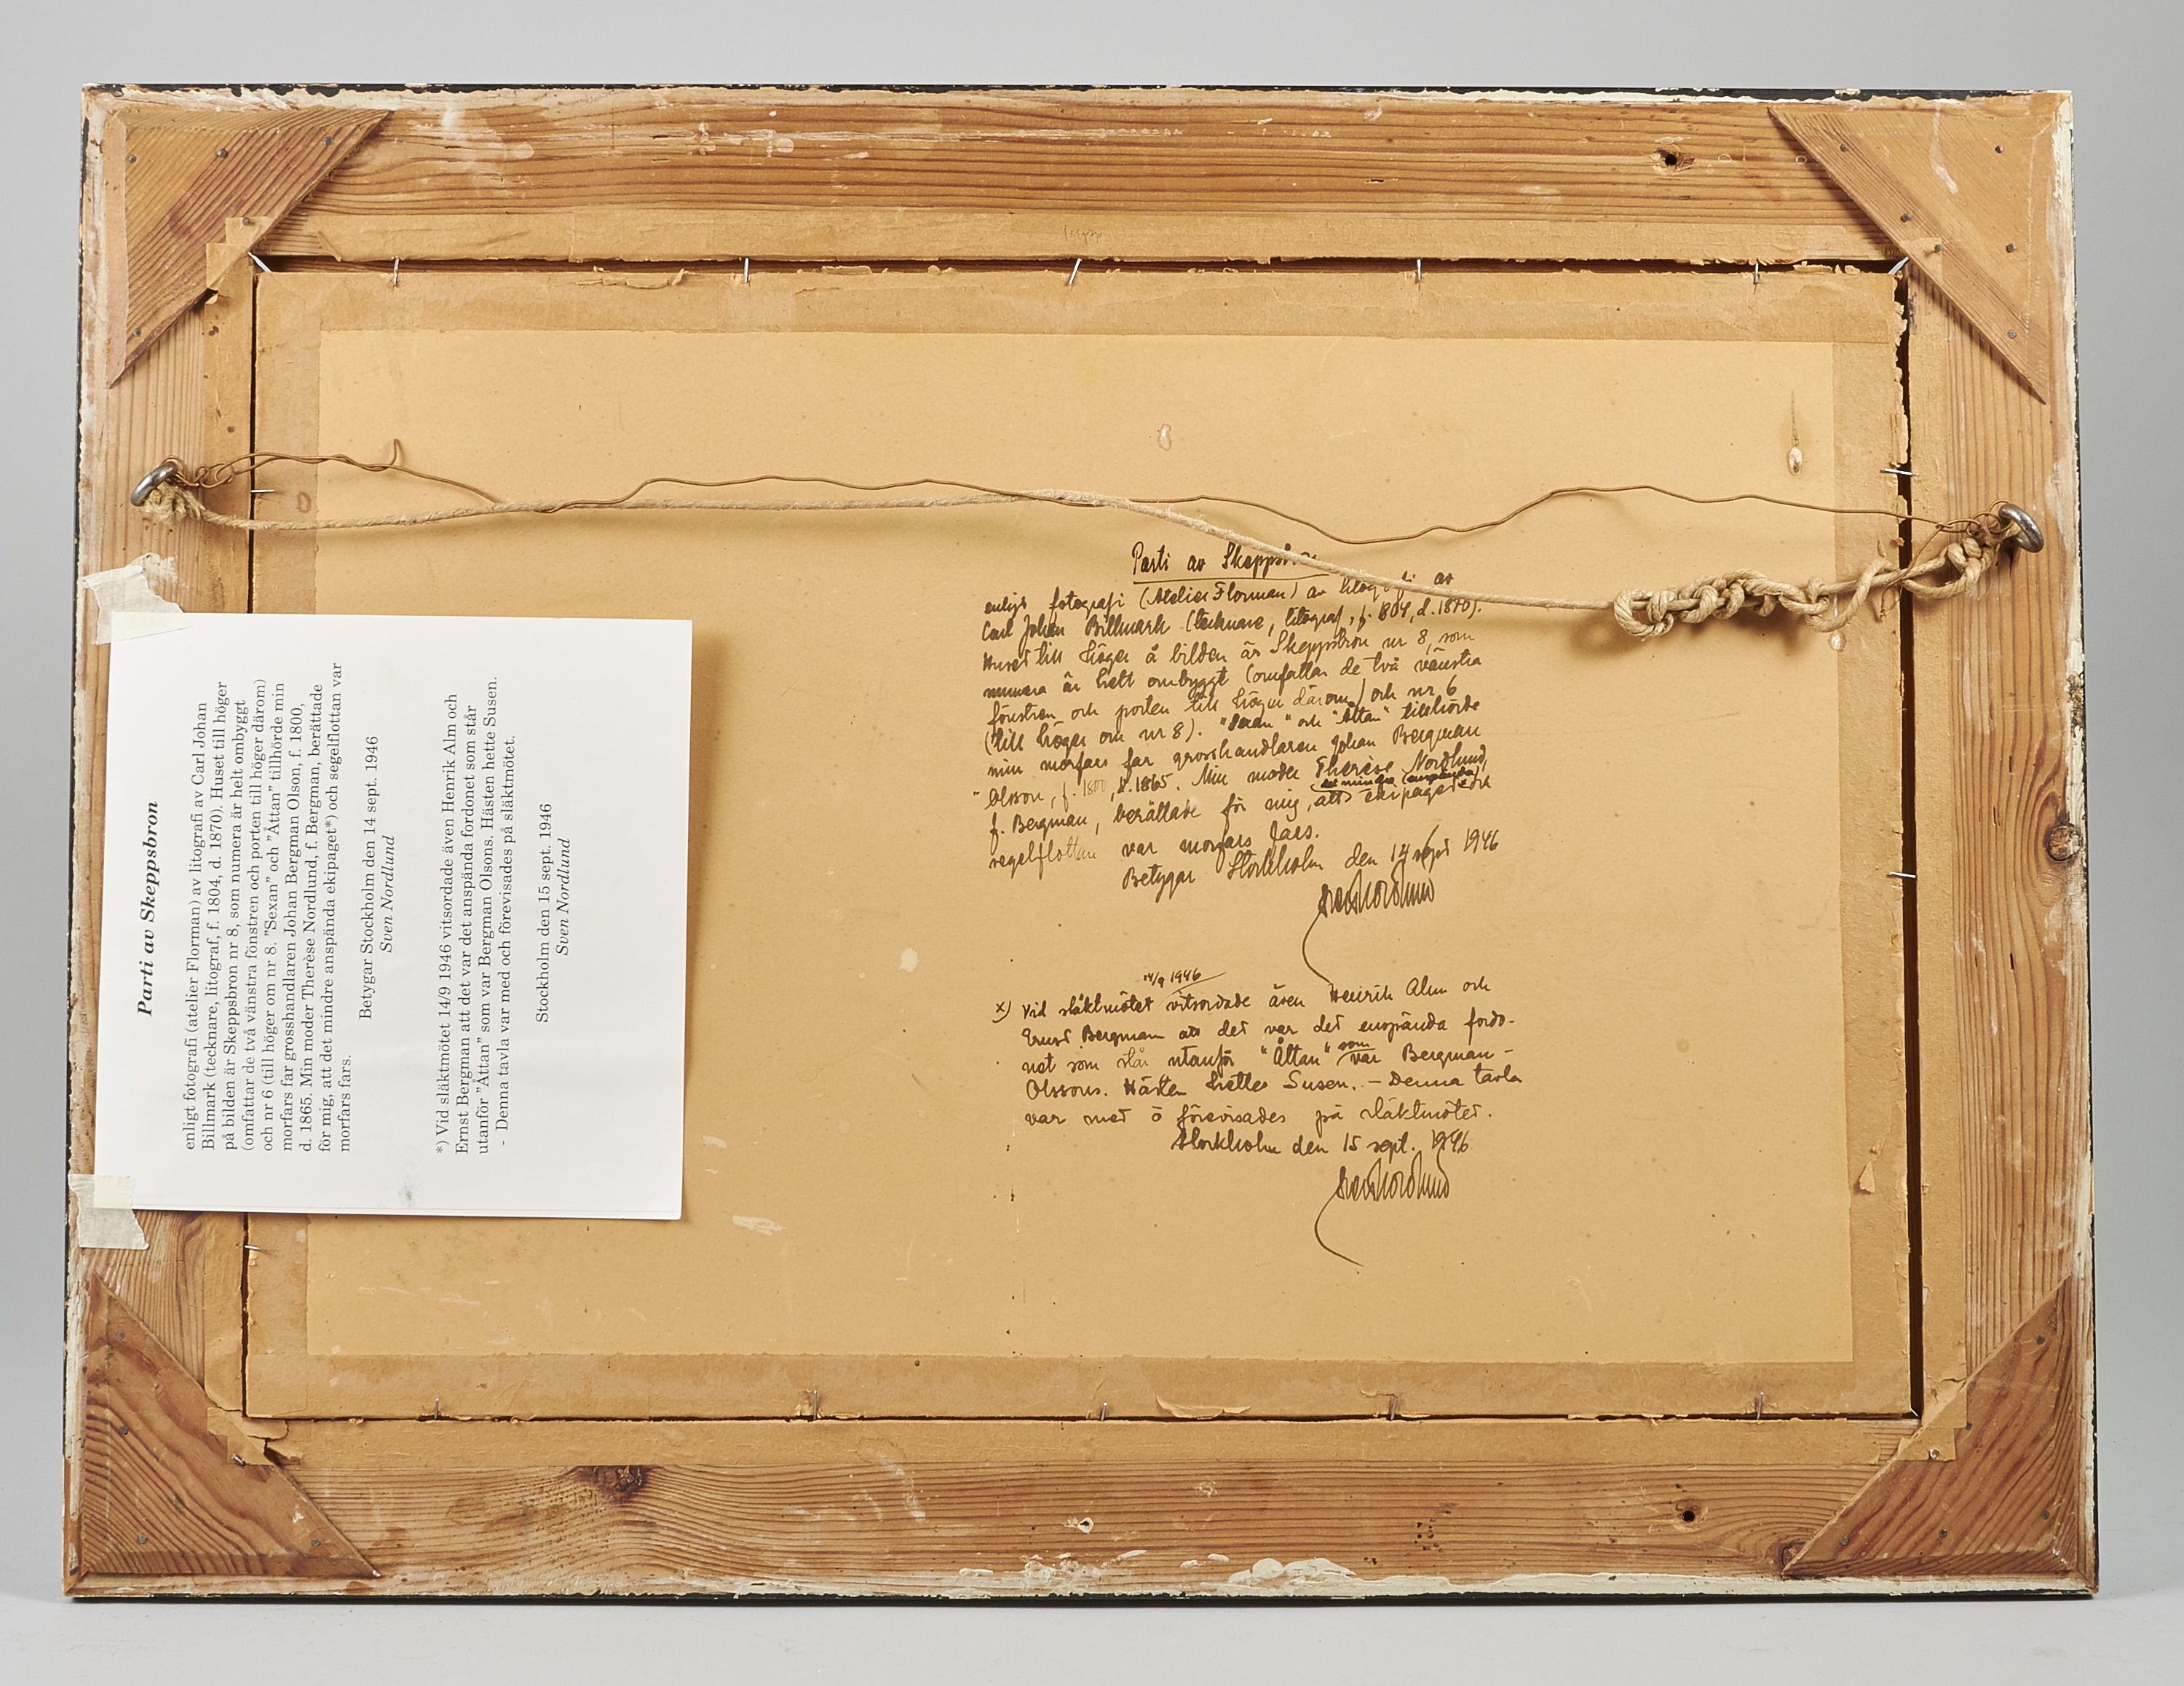 Parti av Skeppsbron
enligt fotografi (atelier Florman) av litografi av Carl Johan
Billmark (tecknare, litograf, f. 1804, d. 1870). Huset till höger
på bilden är Skeppsbron nr 8, som numera är helt ombyggt
(omfattar de två vänstra fönstren och porten till höger därom)
och nr 6 (till höger om nr 8. "Sexan" och "Åttan" tillhörde min
morfars far grosshandlaren Johan Bergman Olson, f. 1800,
d. 1865. Min moder Therèse Nordlund, f. Bergman, berättade
för mig, att det mindre anspända ekipaget*) och segelflottan var
morfars fars.
Betygar Stockholm den 14 sept. 1946
Sven Nordlund
*) Vid släktmötet 14/9 1946 vitsordade även Henrik Alm och
Ernst Bergman att det var det anspända fordonet som står
utanför "Åttan" som var Bergman Olsons. Hästen hette Susen.
- Denna tavla var med och förevisades på släktmötet.
Stockholm den 15 sept. 1946
Sven Nordlund
Parti av Skeppsbron
enligt fotografi (Atelier Florman) av litografi av
Carl Johan Billmark (tecknare, litograf, f. 1804, d. 1870).
Huset till höger å bilden är Skeppsbron nr 8, som
numera är helt ombyggt (omfattar de två vänstra
fönstren och porten till höger därom) och nr 6
(till höger om nr 8). "Sexan" och "Åttan" tillhörde
min morfars far grosshandlaren Johan Bergman
Olsson, f. 1800, d. 1865. Min moder Therèse Nordlund,
det mindre (enspända)
f. Bergman, berättade för mig, att ekipaget x) och
segelflottan var morfars fars.
Betygar Stockholm den 14 sept 1946
Sven Nordlund
14/9 1946
x) Vid släktmötet vitsordade även Henrik Alm och
Ernst Bergman att det var det enspända fordo-
net som står utanför "Åttan" som var Bergman-
Olssons. Hästen hette Susen. - Denna tavla
var med o förevisades på släktmötet.
Stockholm den 15 sept. 1946
Sven Nordlund